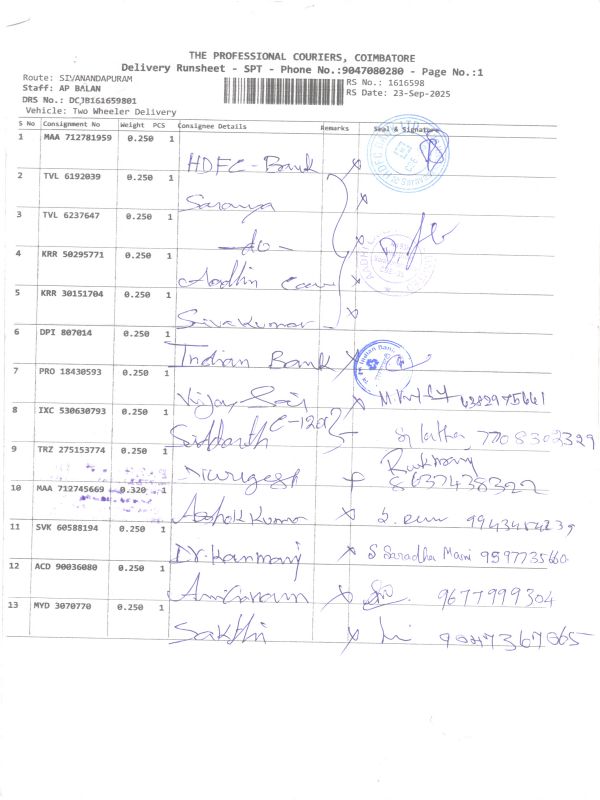 THE PROFESSIONAL COURIERS, COIMBATORE
Delivery Runsheet - SPT - Phone No.:9047080280 - Page No.:1
Route: SIVANANDAPURAM
RS No.: 1616598
Staff: AP BALAN
RS Date: 23-Sep-2025
DRS No.: DCJB161659801
Vehicle: Two Wheeler Delivery
S No Consignment No Weight PCS Consignee Details Remarks Seal & Signature
1 MAA 712781959 0.250 1 HDFC-Bank
2 TVL 6192039 0.250 1 Saranya
3 TVL 6237647 0.250 1 -do-
4 KRR 50295771 0.250 1 Aadhin
5 KRR 30151704 0.250 1 Sivakumar
6 DPI 807014 0.250 1 Indian Bank
Indian Bank
7 PRO 18430593 0.250 1 Vijay Sai 6382975661
8 IXC 530630793 0.250 1 Siddarth latha 7708302329
9 TRZ 275153774 0.250 1 Rukmany
8637438322
10 MAA 712745669 0.320 1 Ashok Kumar
11 SVK 60588194 0.250 1 Dr. Kanmani S Saradha Mani 9597735660
12 ACD 90036080 0.250 1 9677999304
13 MYD 3070770 0.250 1 Sakthi 9047367065